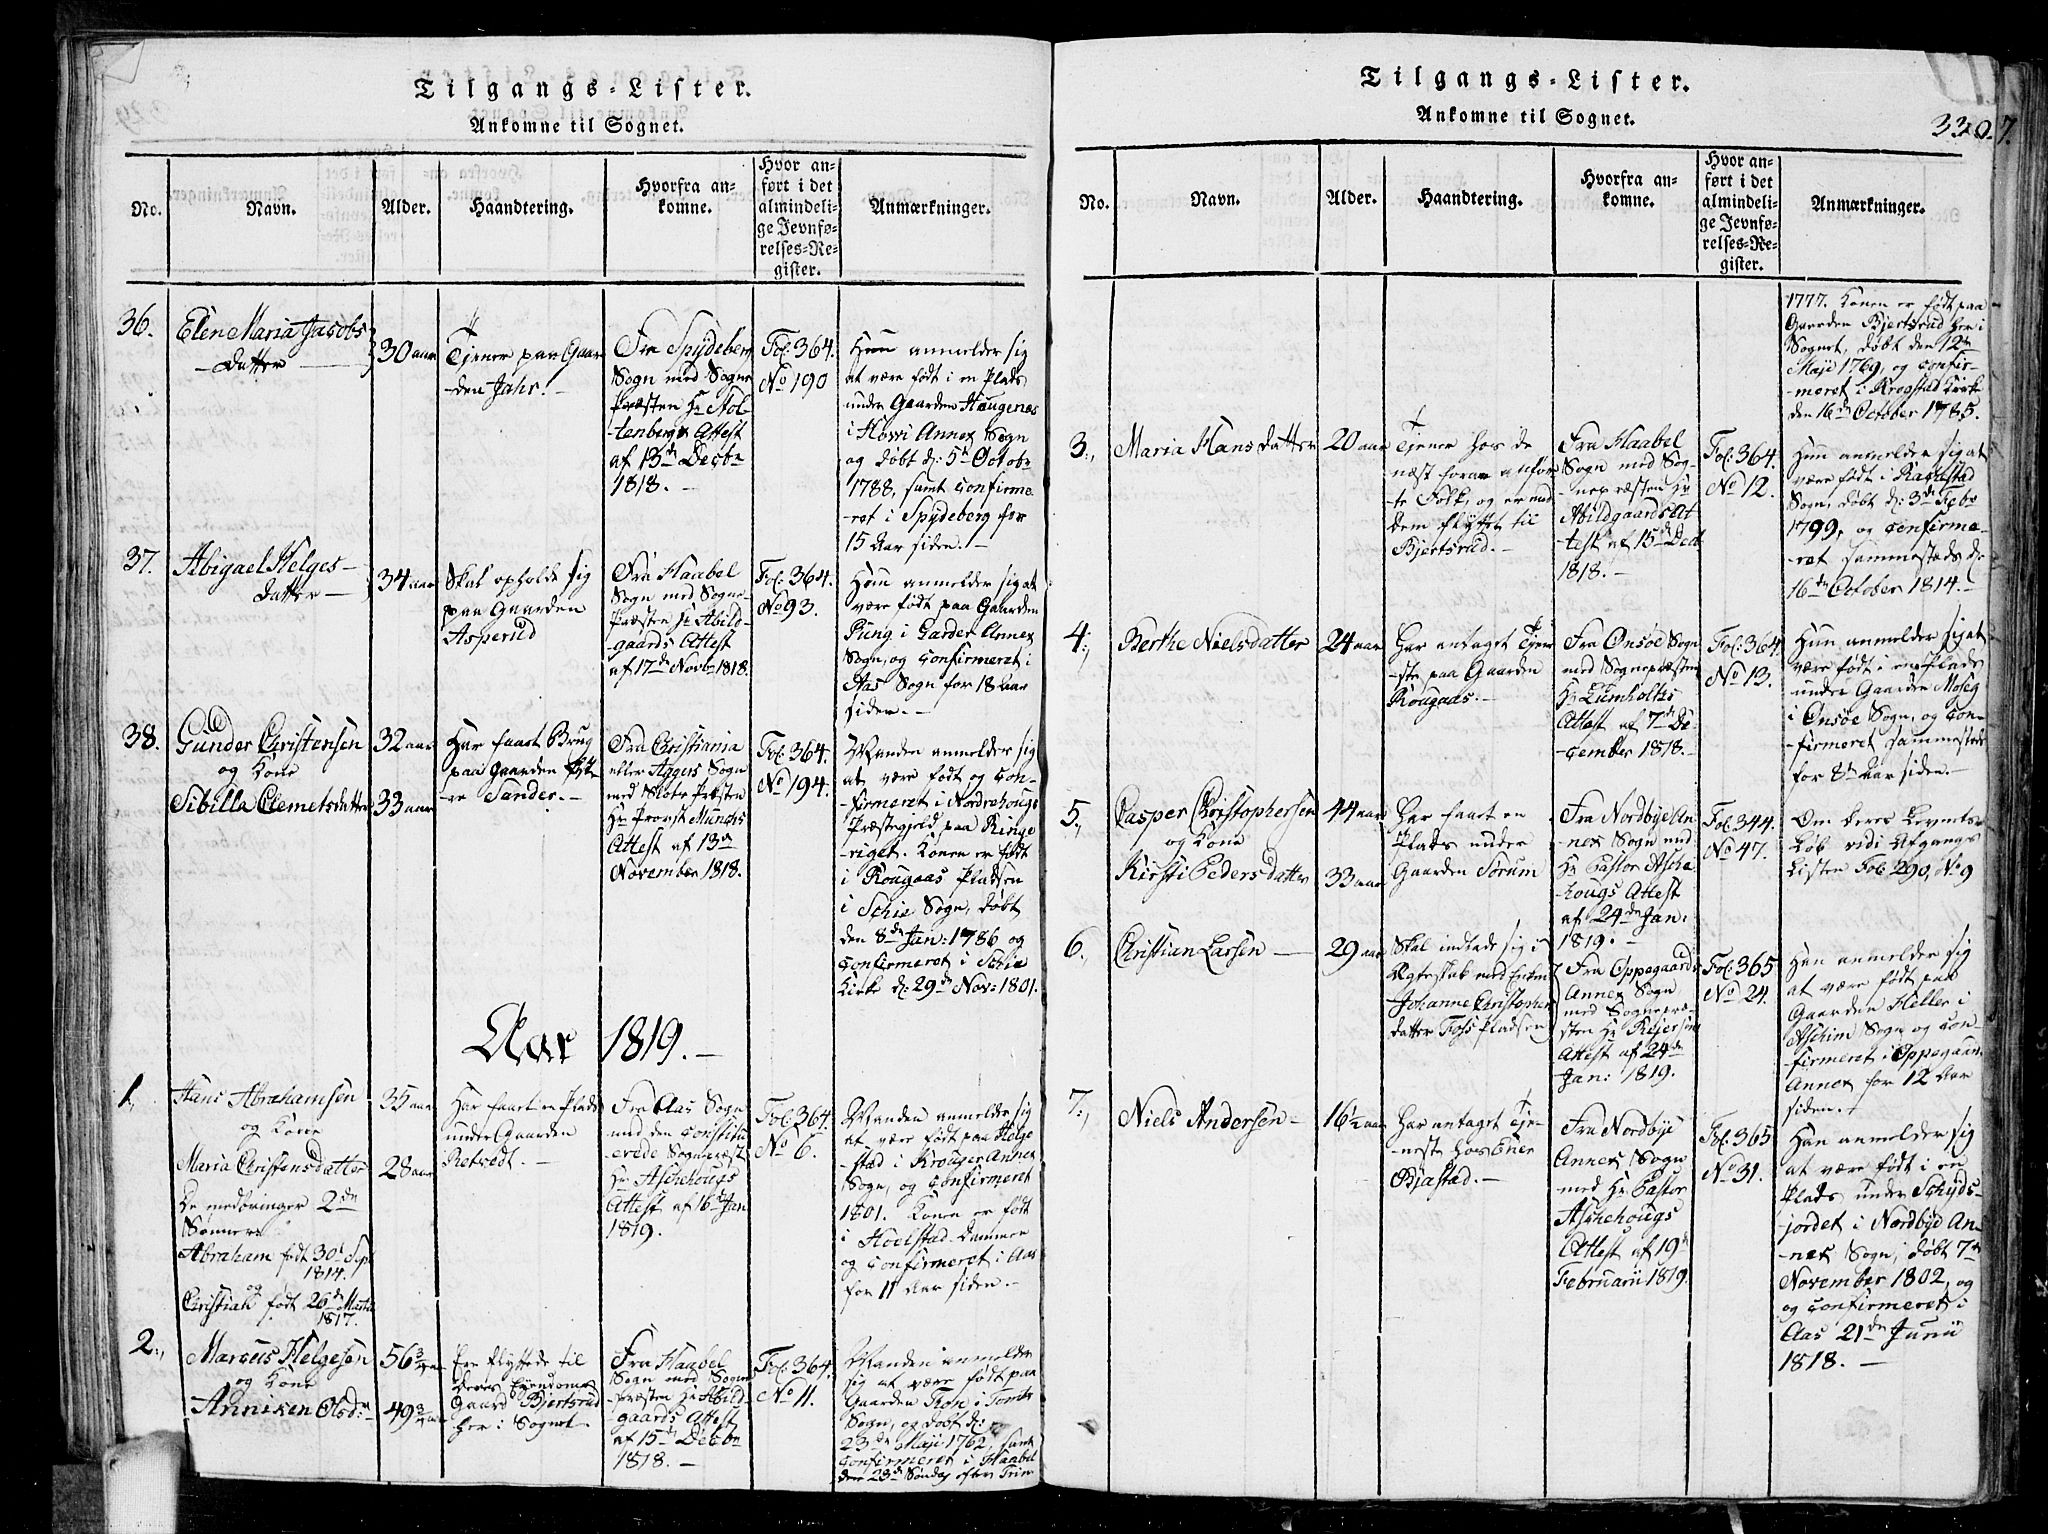 Tilgangs-Lister.
Ankomne til Sognet.
No.
Navn.
Alder.
Haandtering.
Hvorfra an-
komne.
Hvor an-
ført i det
almindeli-
ge Jevnfø-
relses-Re-
gister.
Anmærkninger.
36.
Elen Maria Jacobs
Datter
30 aar
Tjener paa Gaar
-den Jahr.
Fra Spydeberg
Sogn med Sogne
Præsten Hr Stol-
-tenbergs Attest
af 13de Decbr
1818. -
Fol: 364.
No 190
Hun anmelder sig
at være født i en Plads
under Gaarden Haugenæs
i Hovvi Annex Sogn
og døbt d: 5te Octobr
1788, samt Confirme
-ret i Spydeberg for
15 Aar siden. -
37.
Abigael Helges-
Datter
34 aar
Skal opholde sig
paa Gaarden
Asperud
Fra Haabel
Sogn med Sogne-
Præsten Hr Abild-
-gaards Attest
af 17de Novbr 1818.
Fol: 364.
No 93.
Hun anmelder sig at
være født paa Gaarden
Pung i Garder Annex
Sogn, og Confirmeret i
Aas Sogn for 18 Aar
siden. -
38.
Gunder Christensen
og Kone
Sibilla Clemetsdatter
32 aar
33 aar
Har faaet Brug
paa Gaarden
Sander. -
Fra Christiania
eller Aggers Sogn
med Slots Præsten
Hr Provst Munchs
Attest af 13de
November 1818.
Fol: 364.
No 194.
Manden anmelder sig
at være født og Con-
-firmeret i Nordrehouge
Præstegjeld paa Ringe
-riget. Konen er født
i Kougaas Pladsen
i Schie Sogn, døbt
den 8de Jan: 1786 og
Confirmeret i Schie
Kirke d: 29de Nov: 1801.
Aar 1819. -
1.
Hans Abrahamsen
og Kone
Maria Christensdatter
De medbringer 2de
Sønner
Abraham født 30te Sept
1814.
og
Christian født 26de Martii
1817.
35 aar
28 aar
Har faaet en Plads
under Gaarden
Retvedt. -
Fra Aas Sogn
med den Constitu
-erede Sognepræst
Hr Aschehougs
Attest af 16de Jan
1819.
Fol: 364.
No 6.
Manden anmelder sig
at være født paa Helge
-stad i Krouger Annex
Sogn, og Confirmeret
1801. Konen er født
i Hoelstad-Dammen
og Confirmeret i Aas
for 11 Aar siden. -
2.,
Marcus Helgesen
og Kone
Anniken Olsdr
56 3/4 aar
49 3/4 aar
Ere flyttede til
deres Ejendoms
Gaard Bjertsrud
her i Sognet
Fra Haabel
Sogn med Sogne
-Præsten Hr Abild-
gaards Attest
af 15de Decbr
1818. -
Fol: 364.
No 11.
Manden anmelder
sig at være født paa
Gaarden Tron i Tomter
Sogn, og døbt d:
23de Maji 1762, samt
Confirmeret i Haabel
den 23de Søndag efter Trin:
Tilgangs-Lister.
Ankomne til Sognet.
330.7.
No.
Navn.
Alder.
Haandtering.
Hvorfra an-
komne.
Hvor an-
ført i det
almindeli-
ge Jevnfø-
relses-Re-
gister.
Anmærkninger.
1777. Konen er født paa
Gaarden Bjertsrud her i
Sognet, døbt den 12te
Maji 1769, og Confir-
-meret i Krogstad Kirke
den 16de October 1785.
3.,
Maria Hansdatter
20 aar
Tjener hos de
næst foran anfør
-te Folk, og er med
dem flyttet til
Bjertsrud. -
Fra Haabel
Sogn med Sog-
-nepræsten Hr
Abildgaards At
-test af 15de Decbr
1818. -
Fol: 364.
No 12.
Hun anmelder sig at
være født i Rakkestad
Sogn, døbt d: 3de Febr
1799, og Confirme-
-ret sammesteds d:
16de October 1814. -
4.,
Berthe Nielsdatter
24 aar
Har antaget Tjene
-ste paa Gaarden
Kougaas. -
Fra Onsøe Sogn
med Sognepræsten
Hr Lumholtes
Attest af 7de De-
-cember 1818. -
Fol: 364.
No 13.
Hun anmelder sig at
være født i en Plads
under Gaarden Moseg
i Onsøe Sogn, og Con-
-firmeret sammesteds
for 8te Aar siden. -
5.,
Casper Christophersen
og Kone
Kirsti Pedersdatter
44 aar
33 aar
Har faaet en
Plads under
Gaarden Sorum
Fra Nordbye An-
-nex Sogn med
Hr Pastor Asche
-hougs Attest
af 24de Jan:
1819. -
Fol: 344.
No 47.
Om deres Levnets
Løb vide Afgangs
Listen Fol: 290, No 9
6.,
Christian Larsen
29 aar
Skal indtræde sig i
Ægteskab med Enken
Johanne Christophers
datter Foss Pladsen
Fra Oppegaards
Annex Sogn
med Sognepræ-
sten Hr Rejersens
Attest af 24de
Jan: 1819.
Fol: 365
No 24.
Han anmelder sig
at være født paa
Gaarden Heller i
Aschim Sogn og Con-
-firmeret i Oppegaard
Annex for 12 Aar
siden. -
7.,
Niels Andersen
16 1/2 aar
Har antaget Tje-
-neste hos Ener
Bjastad. -
Fra Nordbye
Annex Sogn
med Hr Pastor
Aschehougs
Attest af 19de
Februarii 1819.
Fol: 365
No 31.
Han anmelder sig
at være født i en
Plads under Schyds-
-jordet i Nordbye An-
-nex Sogn, døbt 7de
November 1802, og
og Confirmeret i
Aas 21de Junii
1818. -